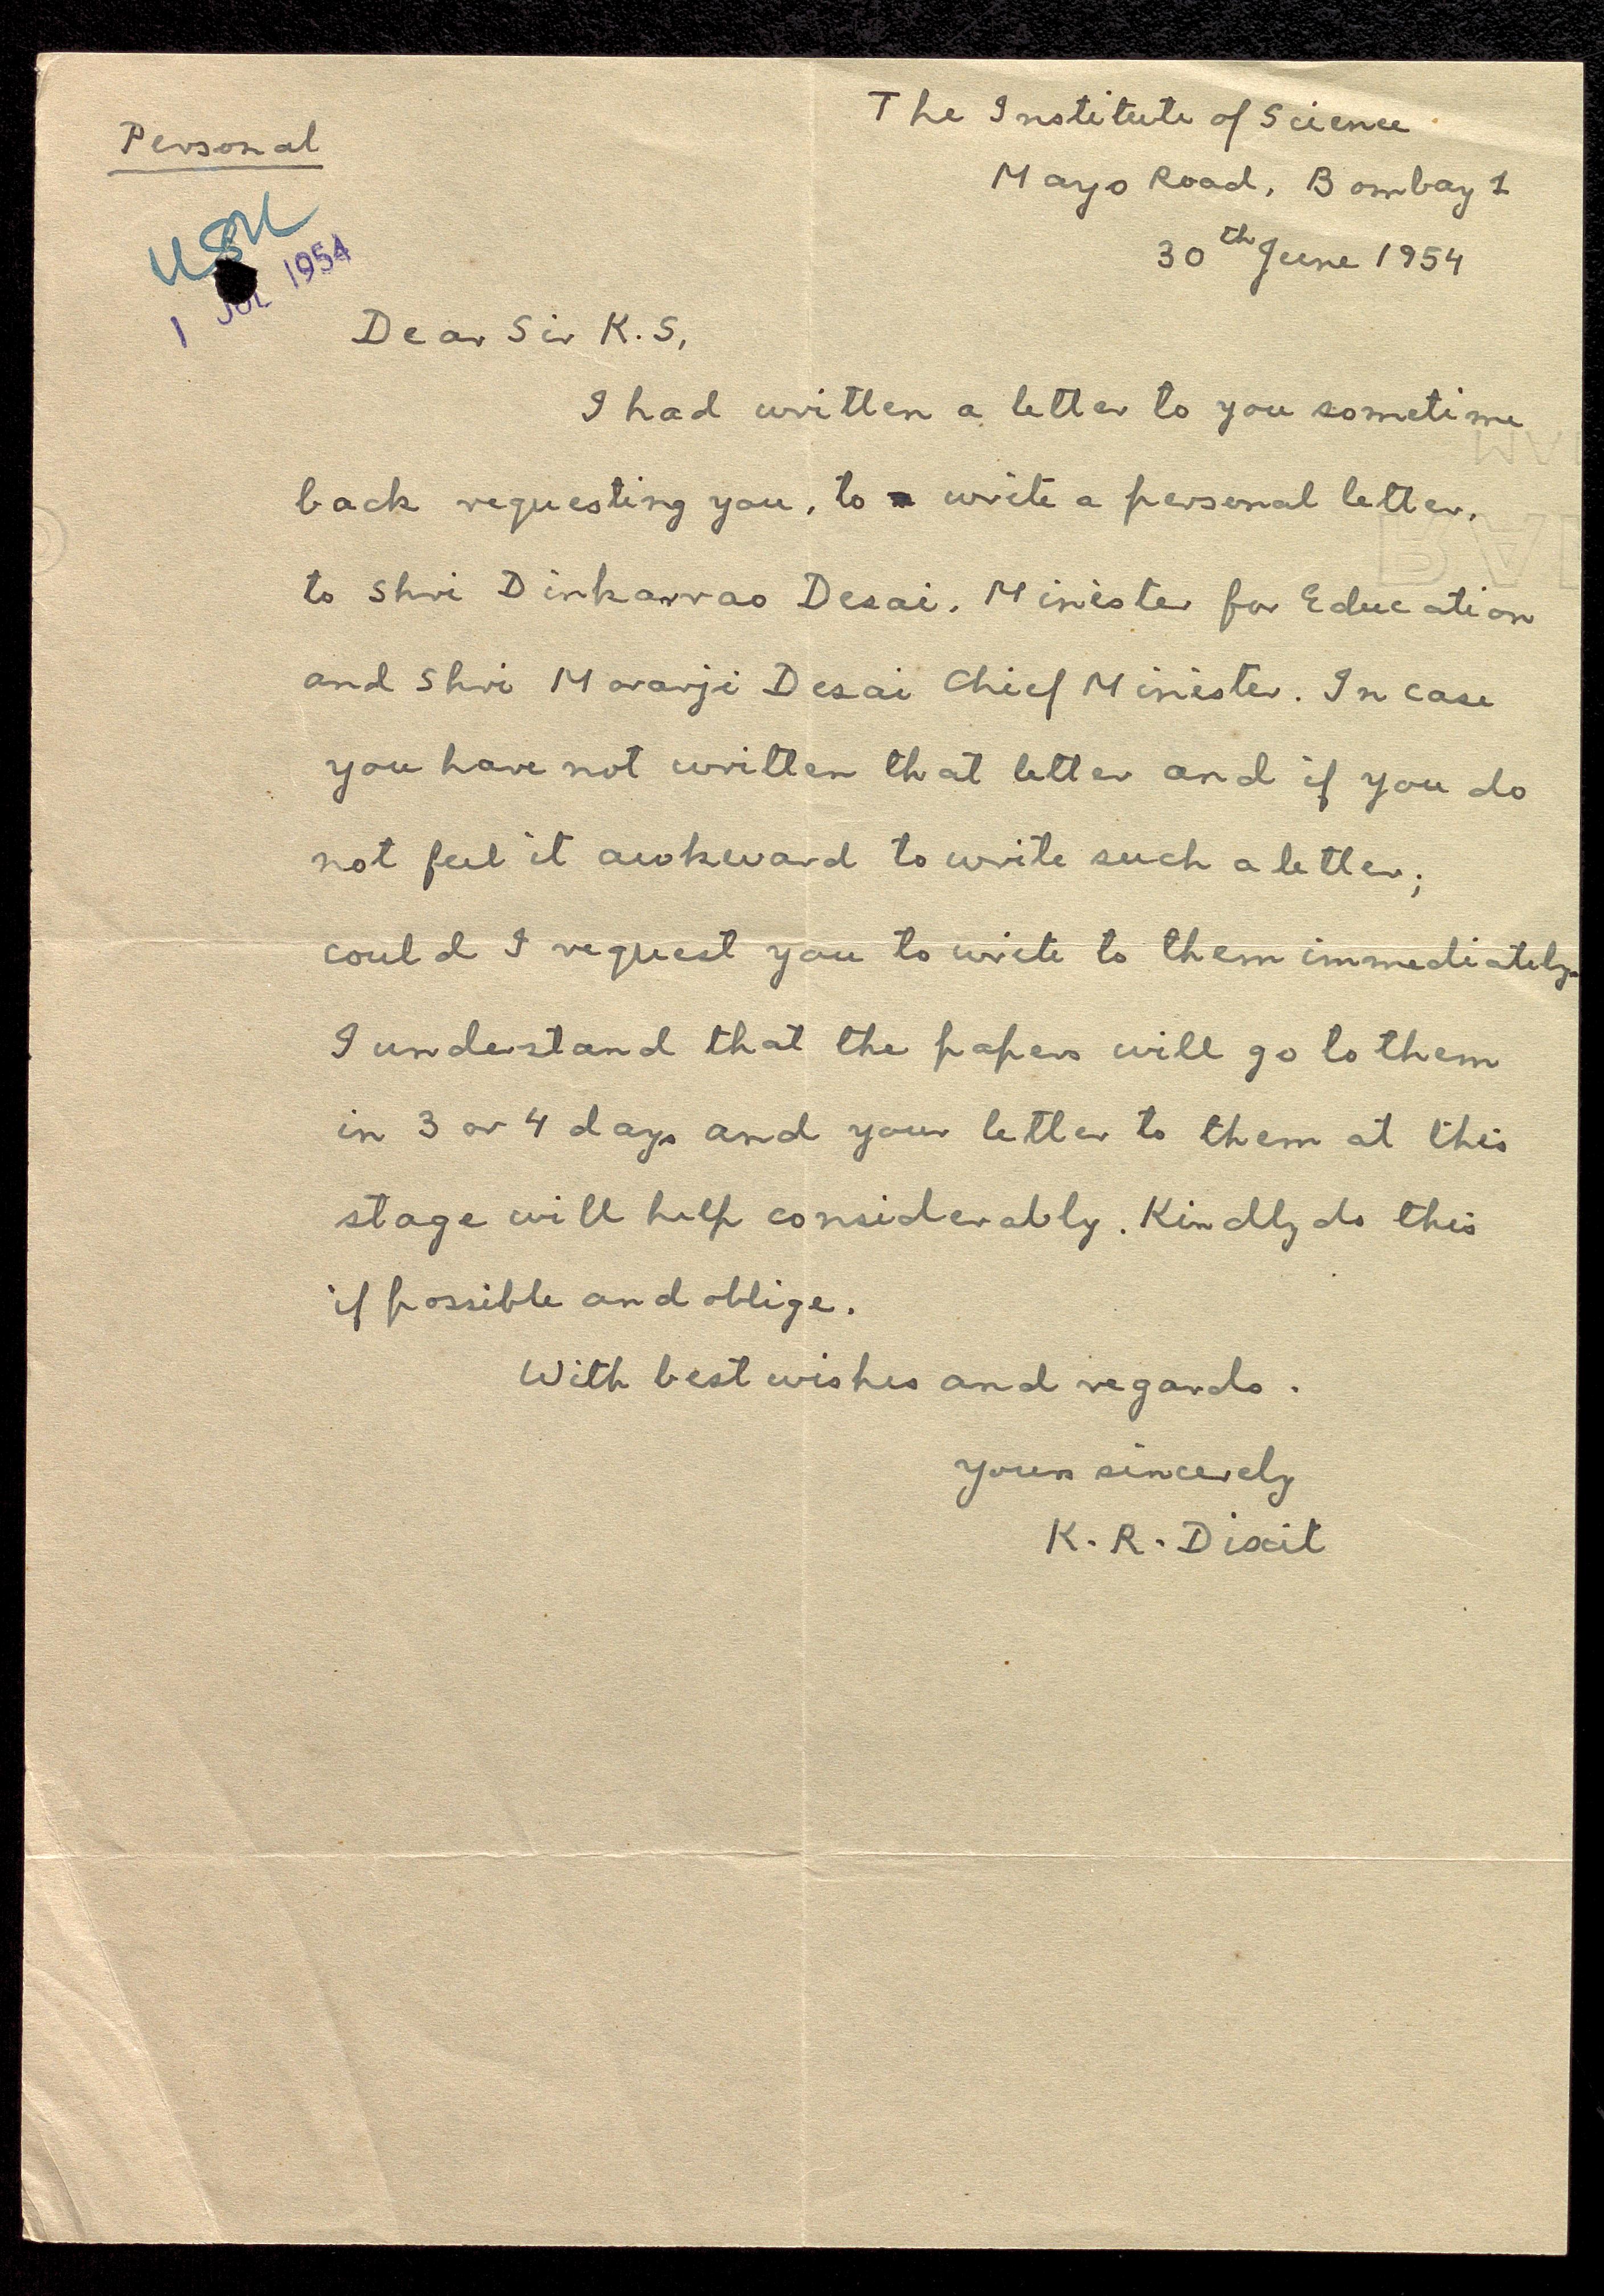 Personal
The Institute of Science
Mayo Road, Bombay 1
30th June 1954
1 JUL 1954
Dear Sir K.S,
I had written a letter to you sometime
back requesting you, to write a personal letter,
to Shri Dinkarrao Desai, Minister for Education
and Shri Morarji Desai Chief Minister. In case
you have not written that letter and if you do
not feel it awkward to write such a letter;
could I request you to write to them immediately.
I understand that the papers will go to them
in 3 or 4 days and your letter to them at this
stage will help considerably. Kindly do this
if possible and oblige.
With best wishes and regards.
yours sincerely
K. R. Dixit